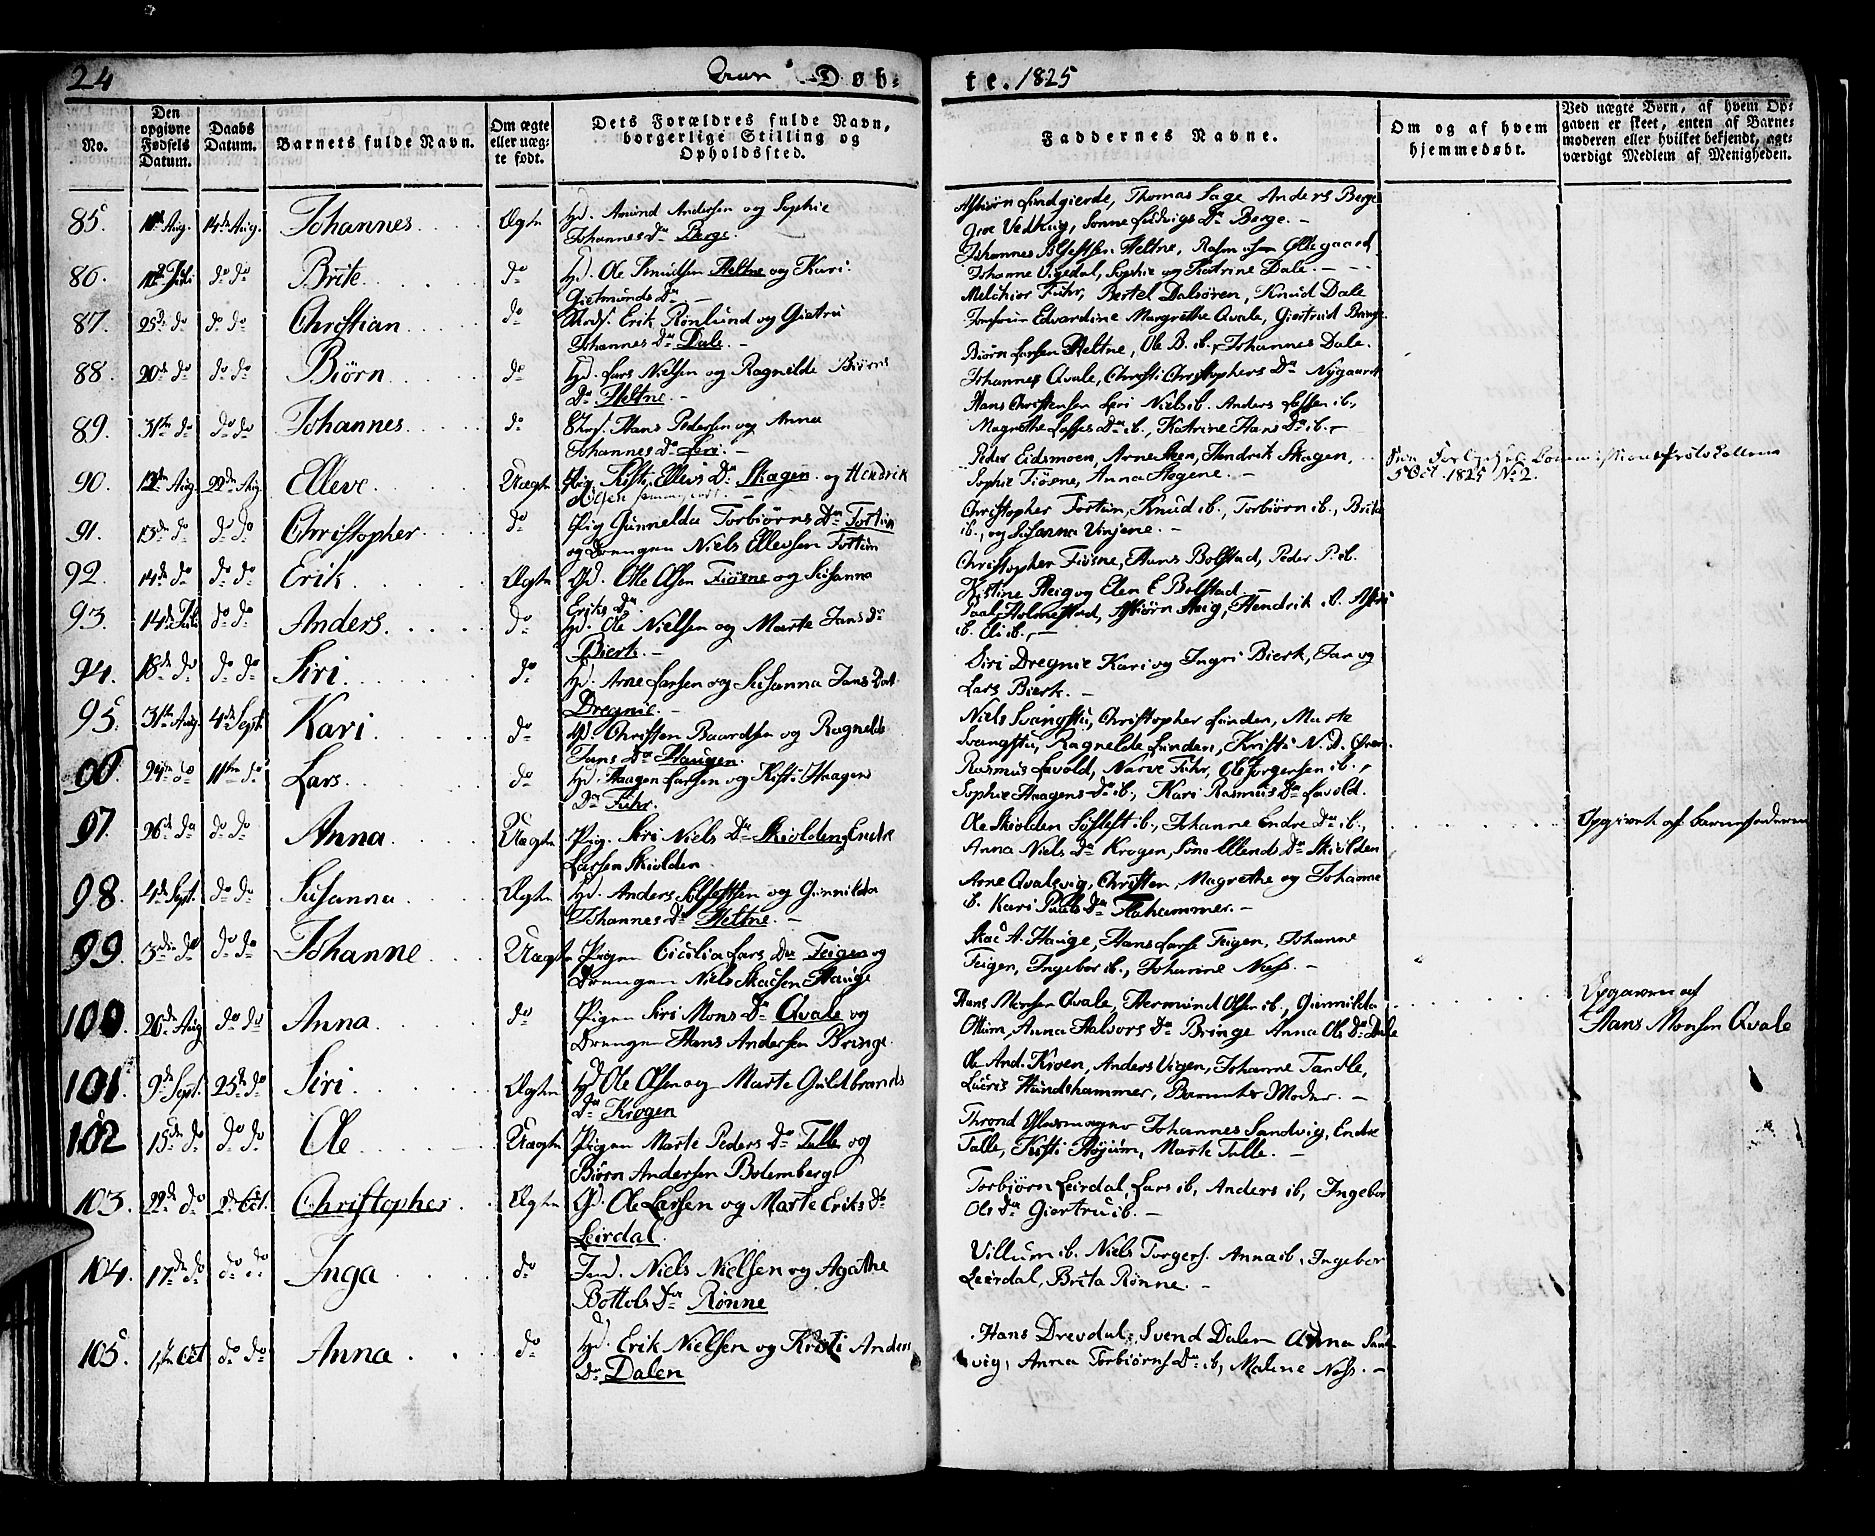 24 Døb-
te. 1825
No.
Den opgivne Fødsels Datum.
Daabs Datum.
Barnets fulde Navn.
Om ægte eller uæg-te født.
Dets Forældres fulde Navn, borgerlige Stilling og Opholdssted.
Faddernes Navne.
Om og af hvem hjemmedøbt.
Ved uægte Børn, af hvem Op-gaven er skeet, enten af Barne-moderen eller hvilket bekjendt, agt-værdigt Medlem af Menigheden.
85. Aug. 14de Aug. Johannes Ægte Amund Andersen og Sophie
Johannes Dr Berge.
Thomas Sage Anders Berge
Ludvigs Dr Berge.
86. do do Brite do Ole Knudsen Heltne og Kari
Giertmunds Dr
Johannes Heltne,
Johanne Vigedal, Sophie og Katrine Dale.
87. 25de do do do Christian do Erik Rønlund og Giertru
Johannes Dr Dale.
Melchior Fuhr, Bertel Dalsøren, Knud Dale
Jomfrue Edvardine Margrethe Qvale, Giertrud Bringe
88. 20de do do do Biørn do Lars Nielsen og Ragnilde Biørns
Dr Heltne
Biørn Larsen Heltne, Ole B. ib, Johannes Dale.
Johannes Qvale, Christi Christophers Dr Nygaard
89. 31te do do do Johannes do Hans Pedersen og Anna
Johannes Dr Leri.
Hans Christensen Leri Niels ib. Anders ib.,
Magrethe Dr ib., Katrine Hans Dr ib.
90. 12te Aug 22de Aug Elleve Uægte Pig. Kisti Ellevs Dr Skagen og Hendrik
Peder Eidsmoen, Arne Hendrik Skagen,
Sophie Fiøsne, Anna
5 Oct. 1825 No 2.
91. 13de do do do Christopher do Pig Gunnelda Torbiørns Dr Fortun
og Drengen Niels Ellevsen Fortun
Christopher Fortun, Knud ib., Torbiørn ib., Brita
ib., og Susanna Vinjene.
92. 14de do do do Erik Ægte Otte Olsen Fiøsne og Susanna
Eriks Dr.
Christopher Fiøsne, Hans Bolstad, Peder P. ib.
Kistine Steig og Elen E Bolstad
93. 14de do do Anders do Ole Nielsen og Marte Jans Dr
Bierk.
Paal Holmestad, Hendrik ib.
ib. Eli ib.,
94. 18de do do do Siri do Arne Larsen og Susanna Jans Dat
Dregnie.
Siri Dregnie Kari og Ingri Bierk, Jan og
Lars Bierk.
95. 31te Aug. 4de Sept Kari do Christen Baardsen og Ragnelde
Jans Dr Haugen.
Niels Svangstu, Christopher Linden, Marte
Svangstu, Ragnelde Linden, Kristi N. D.
96. do 11te do Lars do Haagen Larsen og Kisti Haagens
Dr Fuhr.
Rasmus Lavold, Narve Fuhr, Ole Jorgersen ib.,
Sophie Haagens Dr ib., Kari Rasmus Dr Lavold.
97. 26de do do do Anna Uægte Pig. Siri Niels Dr Skiolden, Endre
Larsen Skiolden
Ole Skiolden ib., Johanne Endre Dr ib.,
Anna Niels Dr Krogen, Dr Skiolden
Opgivet af barnefaderen
98. 4de Sept. do do Susanna Ægte Anders og Gunnilda
Johannes Dr Heltne.
Arne Qvalsvig, Christen, Magrethe og Johanne
ib. Kari Pauls Dr Flahammer.
99. 3die do do do Johanne Uægte Pigen Cicilia Lars Dr Feigen og
Drengen Niels Hauge
H. Hauge, Hans Feigen, Johanne
Feigen, Ingebor ib., Johanne Næss.
100. 26de Aug do do Anna do Pigen Siri Mons Dr Qvale og
Drengen Hans Andersen Bringe
Hans Monsen Qvale, Hermund Olsen ib., Gunnilda
Ottum, Anna Halvors Dr Bringe Anna Ols Dr Dale
Opgivet af
Hans Monsen Qvale
101. 9de Sept. 25de do Siri Ægte Ole Olsen og Marte Guldbrands
Dr Krogen
Ole And. Kroen, Anders Vigen, Johanne Tandle,
Hundshammer, Barnets Moder.
102 15de do do do Ole Uægte Pigen Marte Peders Dr Talle og
Biørn Andersen Bolemberg
Thrond Johannes Sandvig, Endre
Talle, Kisti Høyum, Marte Talle.
103. 22de do 2de Oct. Christopher Ægte Ole Larsen og Marte Eriks Dr
Leirdal.
Torbiørn Leirdal, Lars ib, Anders ib, Ingebor
Ols Dr Giertru ib.
104. 17de do do do Inga do Niels Nielsen og Agathe
Bottols Dr Rønne
Villum ib. Niels Torgers. Anna ib, Ingebor
Leirdal, Brita Rønne.
105. Oct do do Anna do Erik Nielsen og Kristi Anders
Dr Dalen
Hans Drevdal, Svend Dalen Anna Sand
vig, Anna Torbiørns Dr ib, Malene Næss.